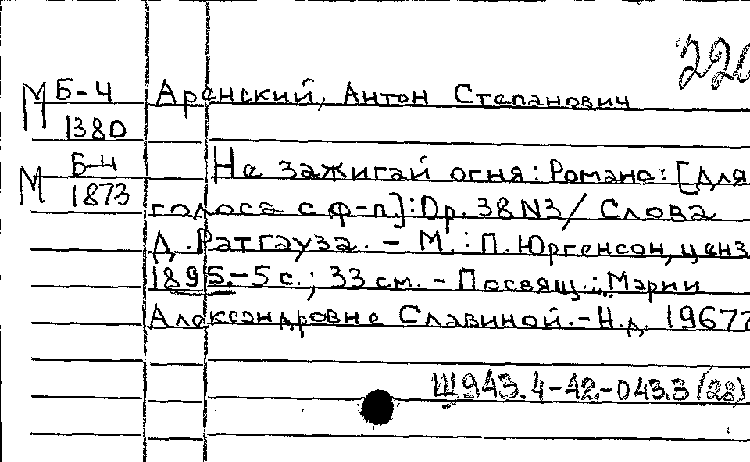 220
М Б-4 Аренский, Антон Степанович
1380
М Б-4 Не зажигай огня: Романс: [Для
1873 голоса с ф-п.]: Ор. 38 N3 / Слова
Д. Ратгауза. - М.: П. Юргенсон, ценз.
1895. - 5 с.; 33 см. - Посвящ.: Марии
Александровне Славиной. - Н.д. 19677
Щ943.4-42-043.3 (28)